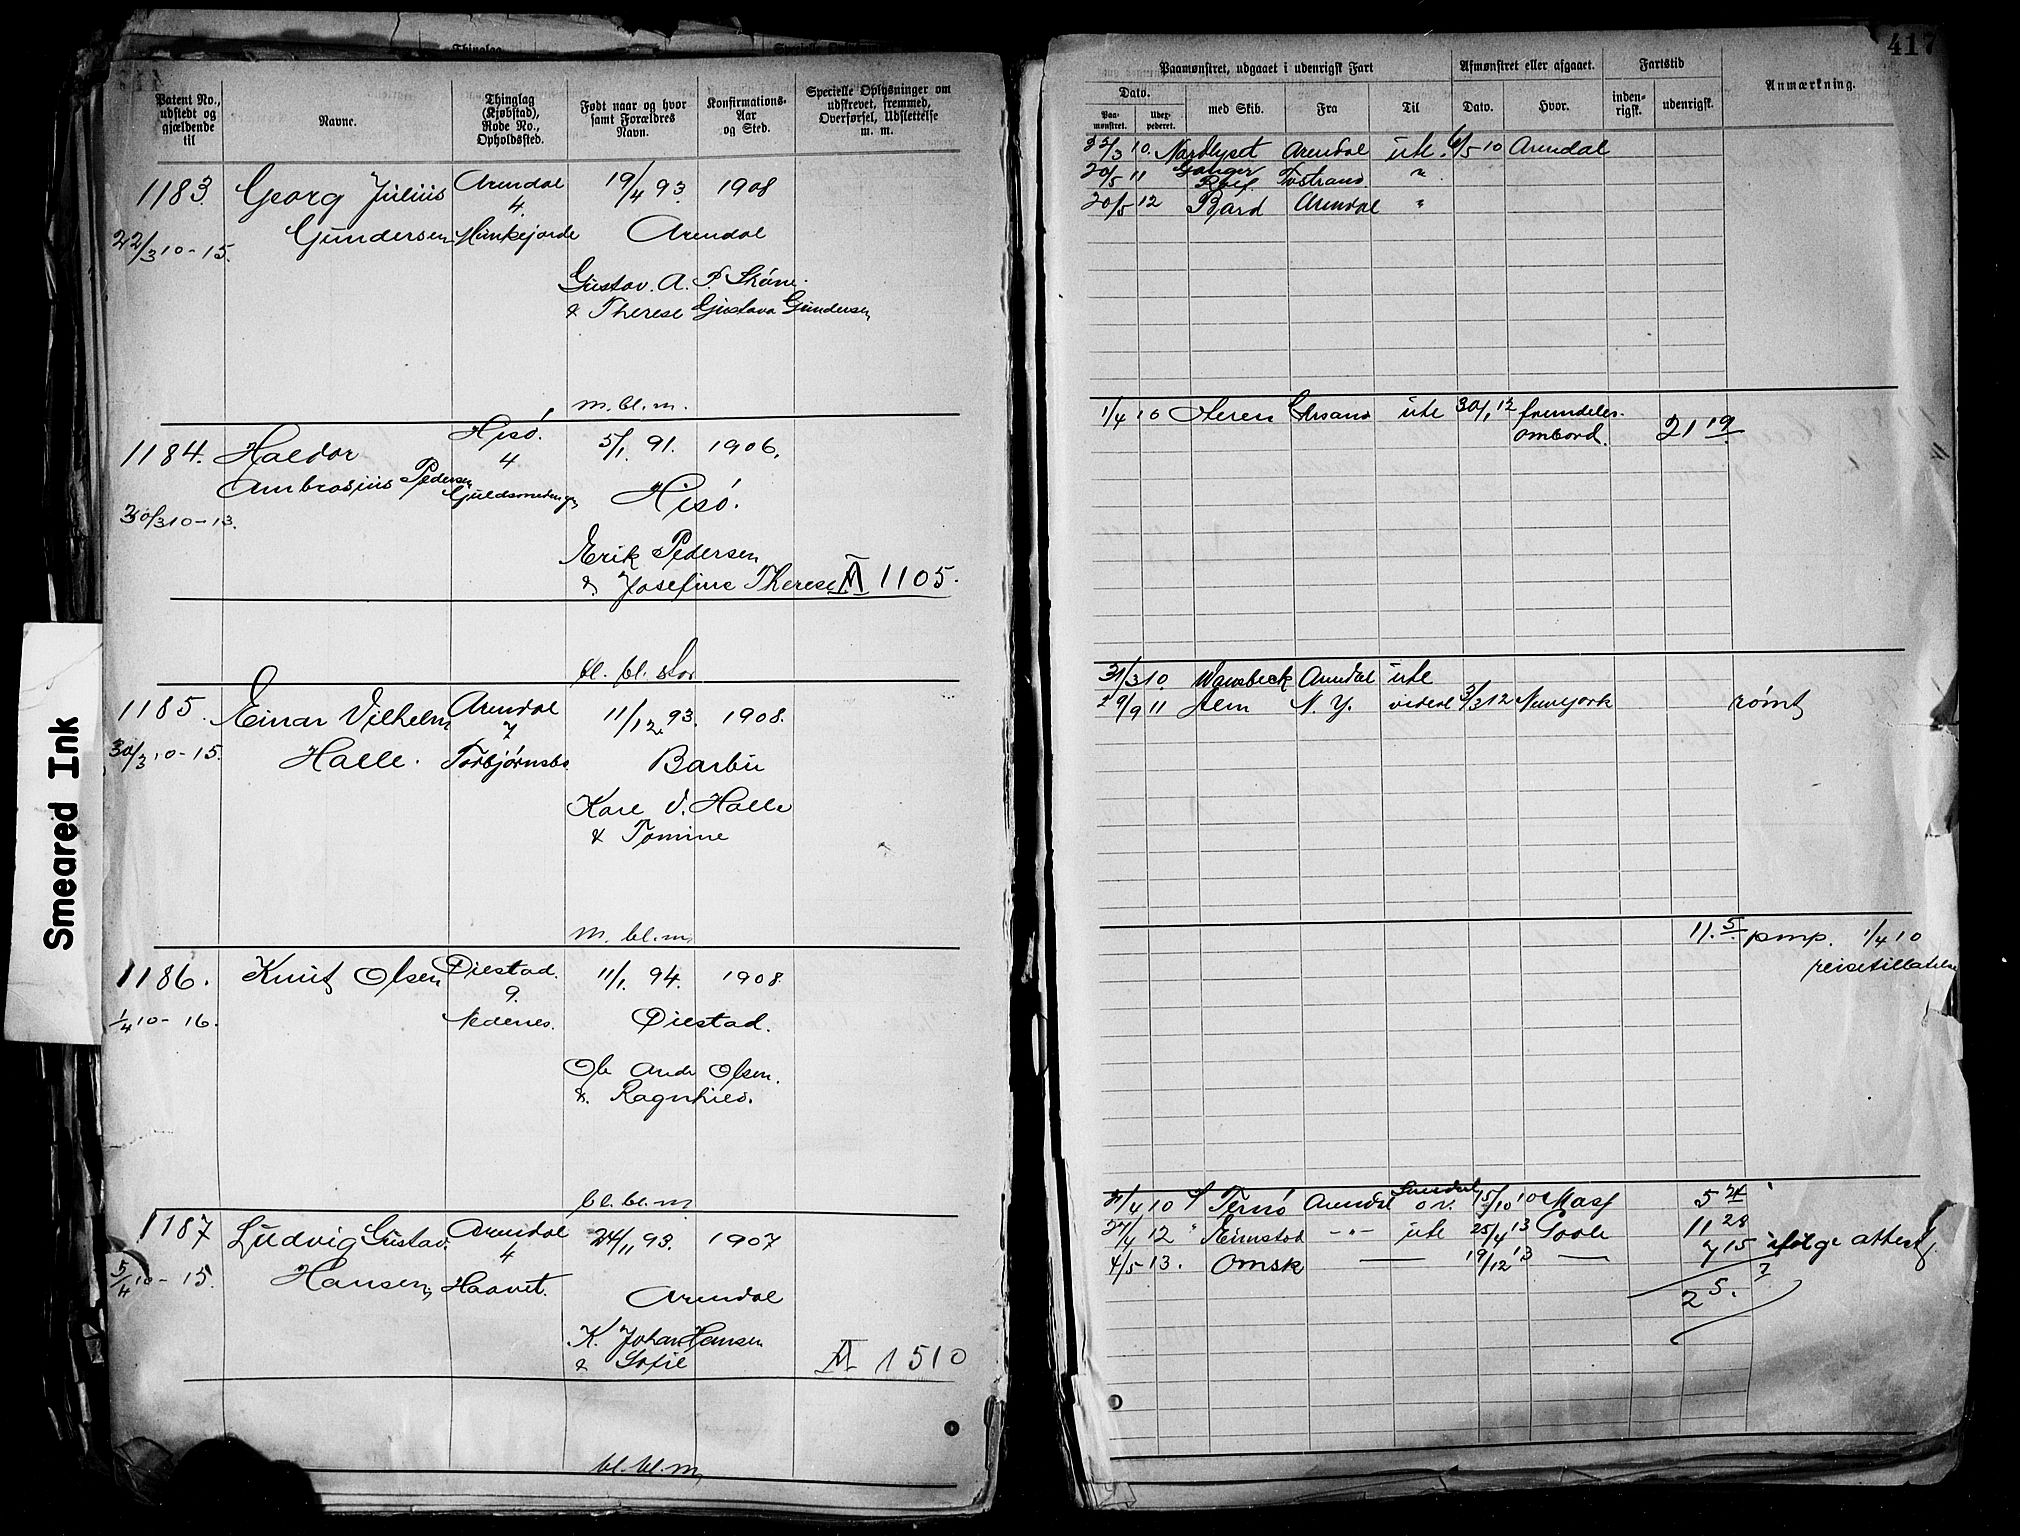 417
Patent No., udstedt og gjældende til
Navne.
Thinglag (Kjøbstad), Rode No., Opholdssted.
Født naar og hvor samt Forældres Navn.
Konfirmations- Aar og Sted.
Specielle Oplysninger om udskrevet, fremmed, Overførsel, Udslettelse m. m.
Paamønstret, udgaaet i udenrigsk Fart
Afmønstret eller afgaaet.
Fartstid
Anmærkning.
Dato.
Paa- mønstret.
Udex- pederet.
med Skib.
Fra
Til
Dato.
Hvor.
inden- rigsk.
udenrigsk.
1183 Georg Julius Arendal 19/4 93 1908
4.
22/3 10-15. Gundersen Munkejorde Arendal
Gustav. A. P.
& Therese Gustava Gundersen
m. bl. m.
22/3 10. Nordlyset Arendal ute. 6/5 10 Arendal
20/5 11 Ganger Rolf Tvstrand "
20/5 12 Bard Arendal "
1184. Haldor Hisö. 5/1. 91. 1906.
Ambrosius Pedersen 4 Guldsmedengen
30/3 10-13. Hisö.
Erik Pedersen
& Josefine Therese A 1105.
bl. bl. stor
1/4 10 Chrsand ute 30/1 12 fremdeles ombord. 21 19
1185. Einar Vilhelm Arendal 11/12 93. 1908.
7
30/3 10-15. Halle. Torbjørnsbo Barbu
Karl V. Halle
& Tomine
m. bl. m
31/3 10. Wansbeck Arendal ute
29/9 11 Alm N. Y. videre 3/3 12 Newyork rømt
1186. Knut Olsen Øiestad. 11/1. 94. 1908.
9.
1/4 10-16. Nedenes. Øiestad.
Ole Andr Olsen.
& Ragnhild.
bl. bl. m
11. 5. pmp. 1/4 10
reisetilladelse
1187 Ludvig Gustav. Arendal 24/11 93. 1907
4
5/4 10-15. Hansen, Haavet. Arendal
K. Johan Hansen
& Sofie A 1510
bl. bl. m
/4 10 S Ternö Arendal Sundsval o.v. 15/10 10 5 21
27/4 12 " Rimstad -"- ute 25/4 13 Goole 11 28
4/5 13. Omsk — 19/12 13 — 7 15 ifølge attest
2 5. 7
Smeared Ink